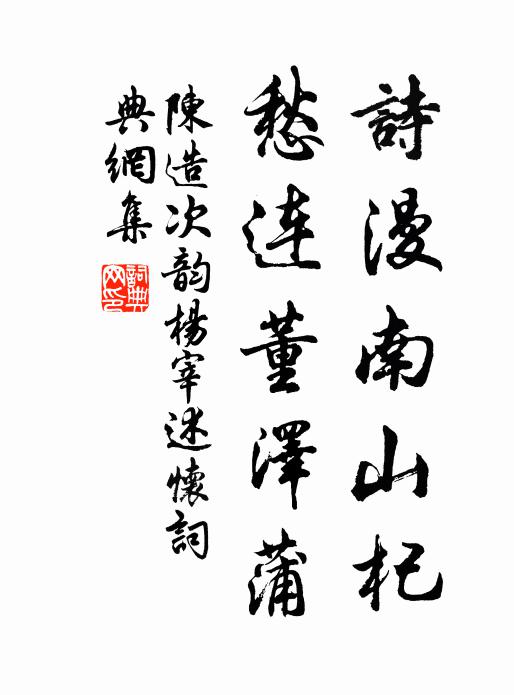 詩漫南山杞
愁連董澤蒲
陳造次韵楊宰述懷詞
典網集
詞典
网印